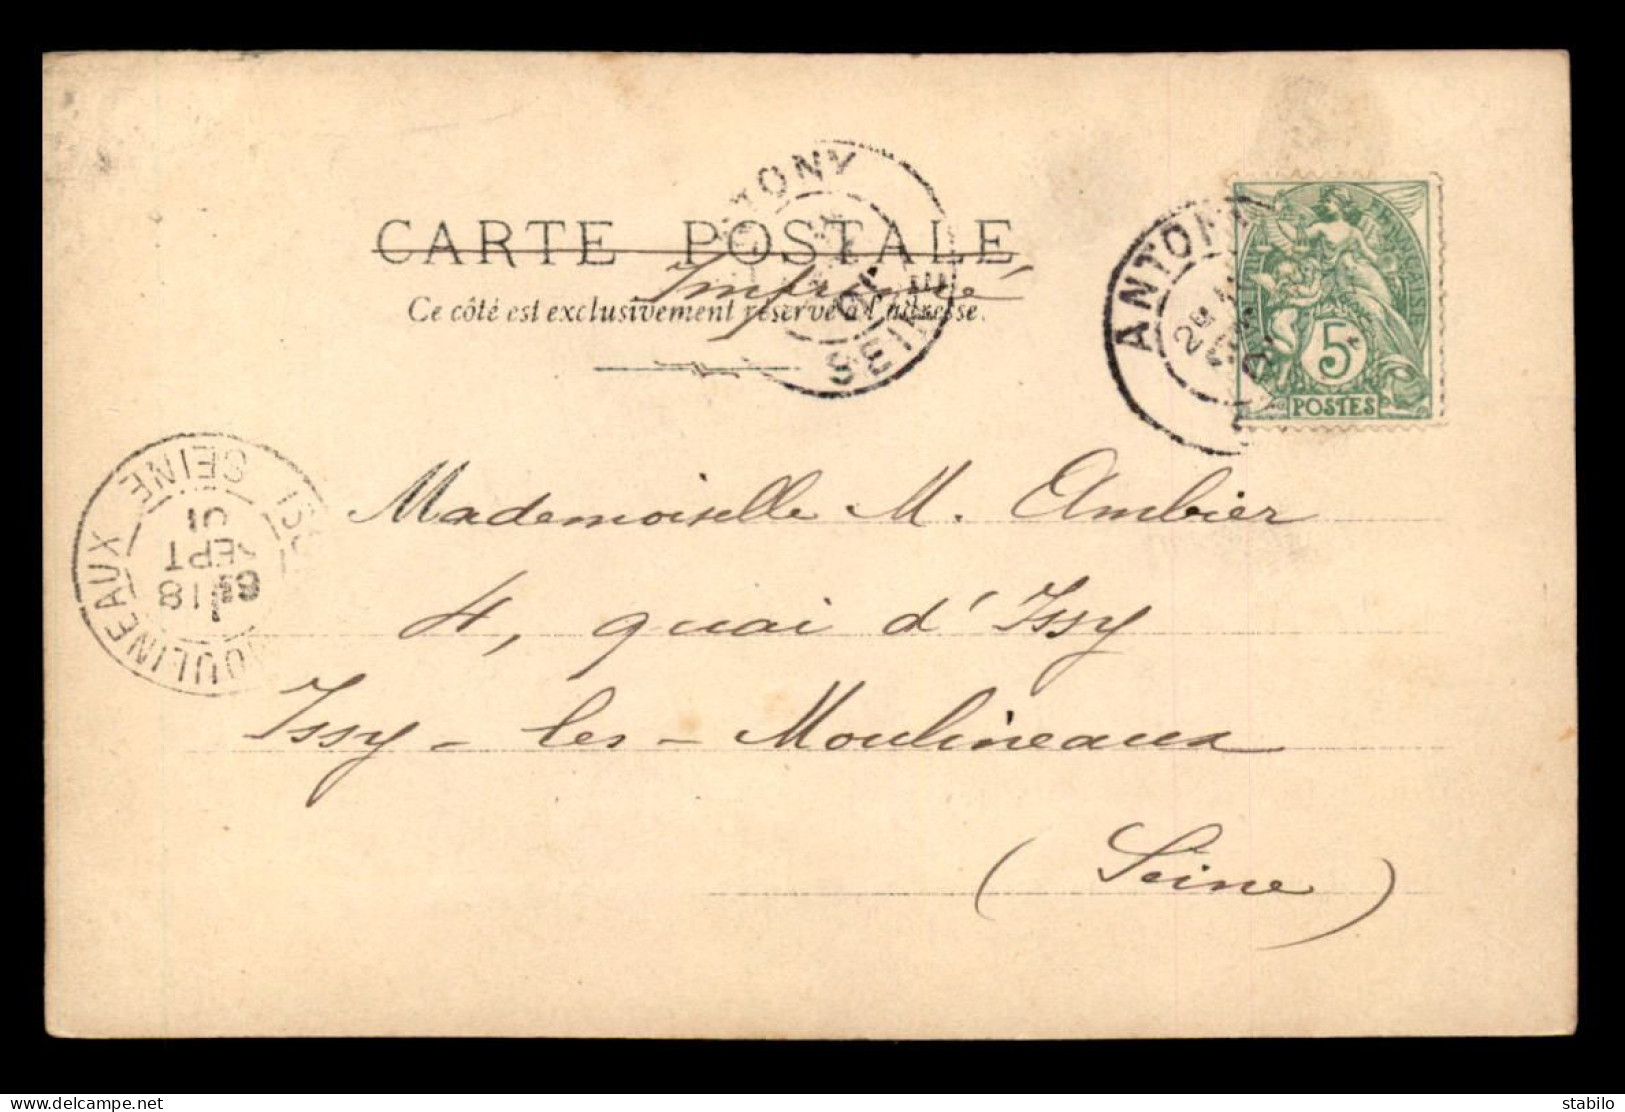 CARTE POSTALE
Imprimé
Ce côté est exclusivement réservé à l'adresse.
ANTONY
SEINE
01
ANTONY
2E
RÉPUBLIQUE FRANÇAISE
5
POSTES
MOULINEAUX
SEINE
8E 18
SEPT
01
Mademoiselle M. Ambier
4, quai d'Issy
Issy-les-Moulineaux
(Seine)
www.delcampe.net
stabilo